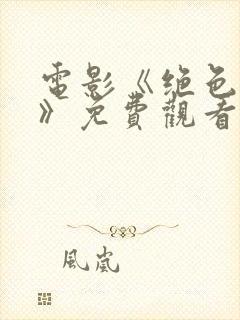 電影《绝色
》免費觀看
風嵐